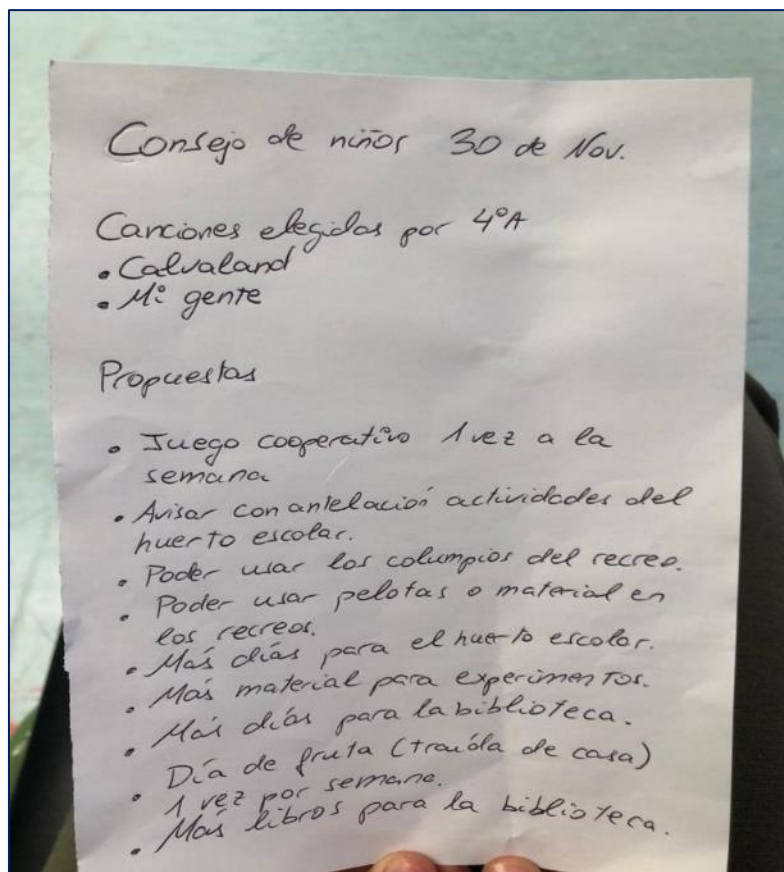 Consejo de niños 30 de Nov.
Canciones elegidas por 4ºA
• Calvaland
• Mi gente
Propuestas
• Juego cooperativo 1 vez a la
semana
• Avisar con antelación actividades del
huerto escolar.
• Poder usar los columpios del recreo.
• Poder usar pelotas o material en
los recreos.
• Más días para el huerto escolar.
• Más material para experimentos.
• Más días para la biblioteca.
• Día de fruta (traída de casa)
1 vez por semana.
• Más libros para la biblioteca.